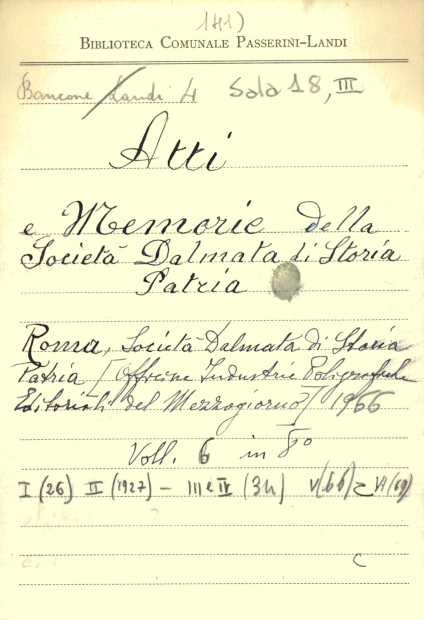 1(1)
BIBLIOTECA COMUNALE PASSERINI-LANDI
Bancone Landi 4 Sala 18, III
Atti
e Memorie della
Società Dalmata di Storia
Patria
Roma, Società Dalmata di Storia
Patria [Officine Industrie Poligrafiche
Editoriali del Mezzogiorno] 1966
Voll. 6 in 8°
I (26) II (1927) – III e IV (34) V(66) e VI (69)
c